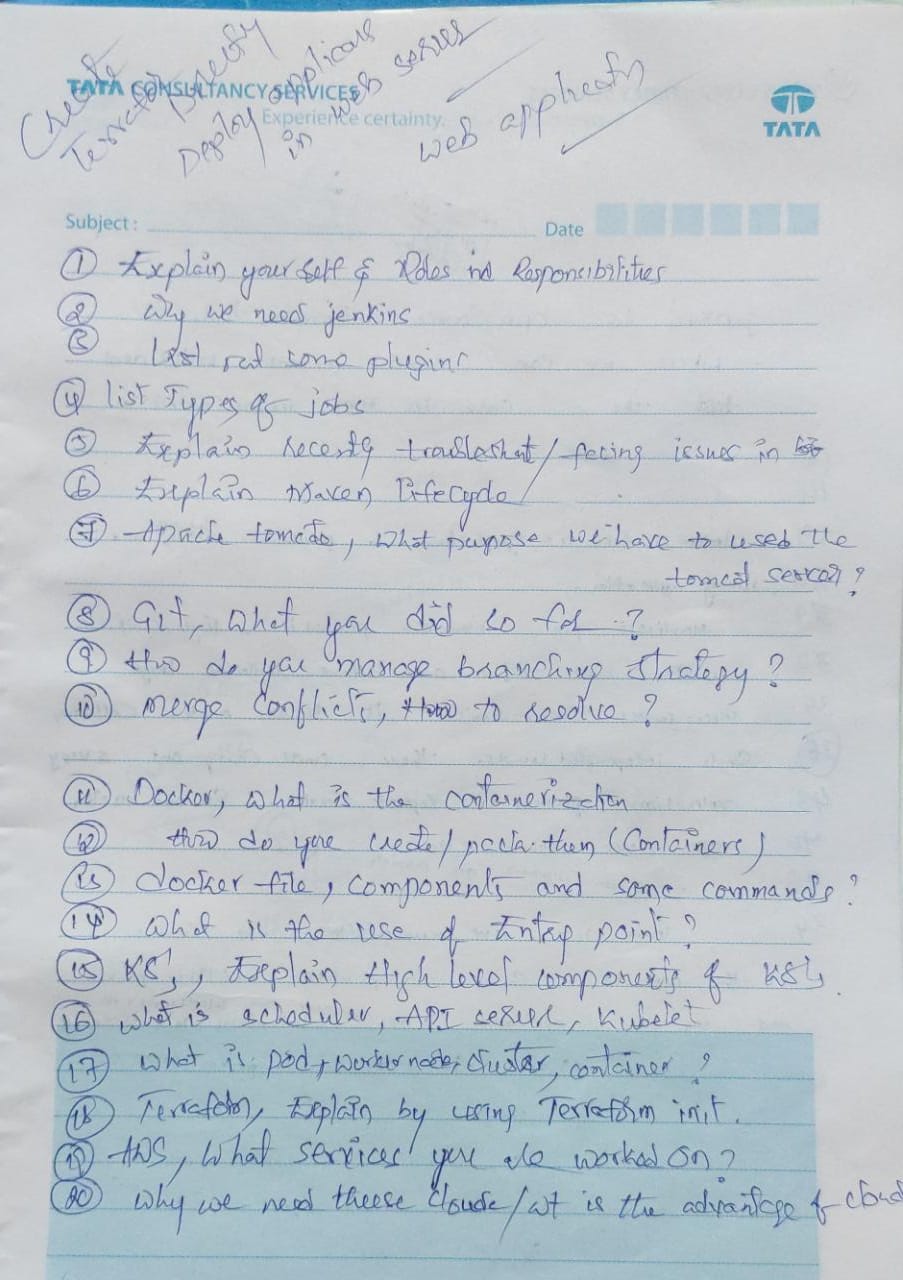 Create
Terraform directly
Deploy applicans
in web series
web applicatn
TATA CONSULTANCY SERVICES
Experience certainty.
TATA
Subject :
Date
① Explain your self & Roles nd Responsibilities
② Why we need jenkins
③ some plugins
④ list Types of jobs
⑤ Explain recently troubleshat / facing issues in
⑥ Explain Maven Lifecycle
⑦ Apache tomcat, what purpose we have to used the
tomcat server?
⑧ Git, what you did so far ?
⑨ How do you manage branching strategy ?
⑩ merge Conflicts, How to resolve ?
⑪ Docker, what is the containerization
⑫ How do you create / pack them (Containers)
⑬ docker file, components and some commands ?
⑭ what is the use of Entry point ?
⑮ K8's, Explain High level components of K8's
⑯ what is scheduler, API server, Kubelet
⑰ what is pod, worker node, cluster, container ?
⑱ Terraform, Explain by using Terraform init.
⑲ AWS, what services you worked on ?
⑳ why we need theese Clouds / wt is the advantage of cloud